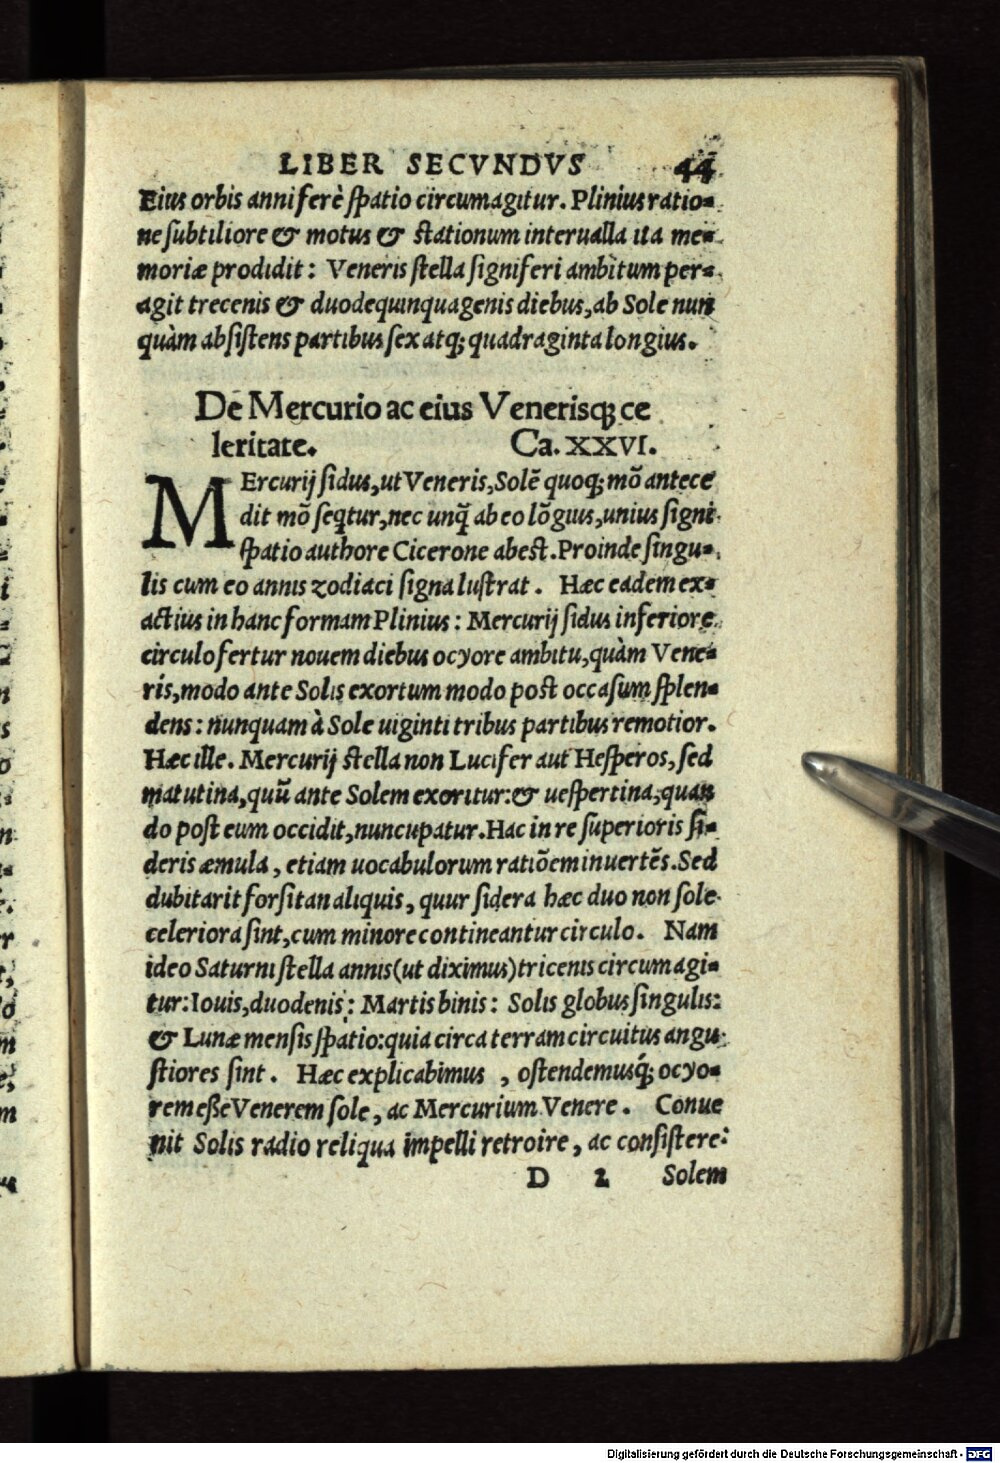 LIBER SECVNDVS 44
Eius orbis anni ferè spatio circumagitur. Plinius ratio-
ne subtiliore & motus & stationum interualla ita me-
moriæ prodidit: Veneris stella signiferi ambitum per-
agit trecenis & duodequinquagenis diebus, ab Sole nun
quàm absistens partibus sex atq; quadraginta longius.
De Mercurio ac eius Venerisq; ce
leritate. Ca. XXVI.
MErcurij sidus, ut Veneris, Solẽ quoq; mõ antece
dit mõ seqtur, nec unq̃ ab eo lõgius, unius signi
spatio authore Cicerone abest. Proinde singu-
lis cum eo annis zodiaci signa lustrat. Hæc eadem ex-
actius in hanc formam Plinius: Mercurij sidus inferiore
circulo fertur nouem diebus ocyore ambitu, quàm Vene-
ris, modo ante Solis exortum modo post occasum splen-
dens: nunquam à Sole uiginti tribus partibus remotior.
Hæc ille. Mercurij stella non Lucifer aut Hesperos, sed
matutina, quũ ante Solem exoritur: & uespertina, quan
do post eum occidit, nuncupatur. Hac in re superioris si-
deris æmula, etiam uocabulorum ratiõem inuertẽs. Sed
dubitarit forsitan aliquis, quur sidera hæc duo non sole
celeriora sint, cum minore contineantur circulo. Nam
ideo Saturni stella annis (ut diximus) tricenis circumagi-
tur: Iouis, duodenis: Martis binis: Solis globus singulis:
& Lunæ mensis spatio: quia circa terram circuitus angu
stiores sint. Hæc explicabimus, ostendemusq́; ocyo-
rem esse Venerem sole, ac Mercurium Venere. Conue
nit Solis radio reliqua impelli retroire, ac consistere:
D 2 Solem
Digitalisierung gefördert durch die Deutsche Forschungsgemeinschaft - DFG